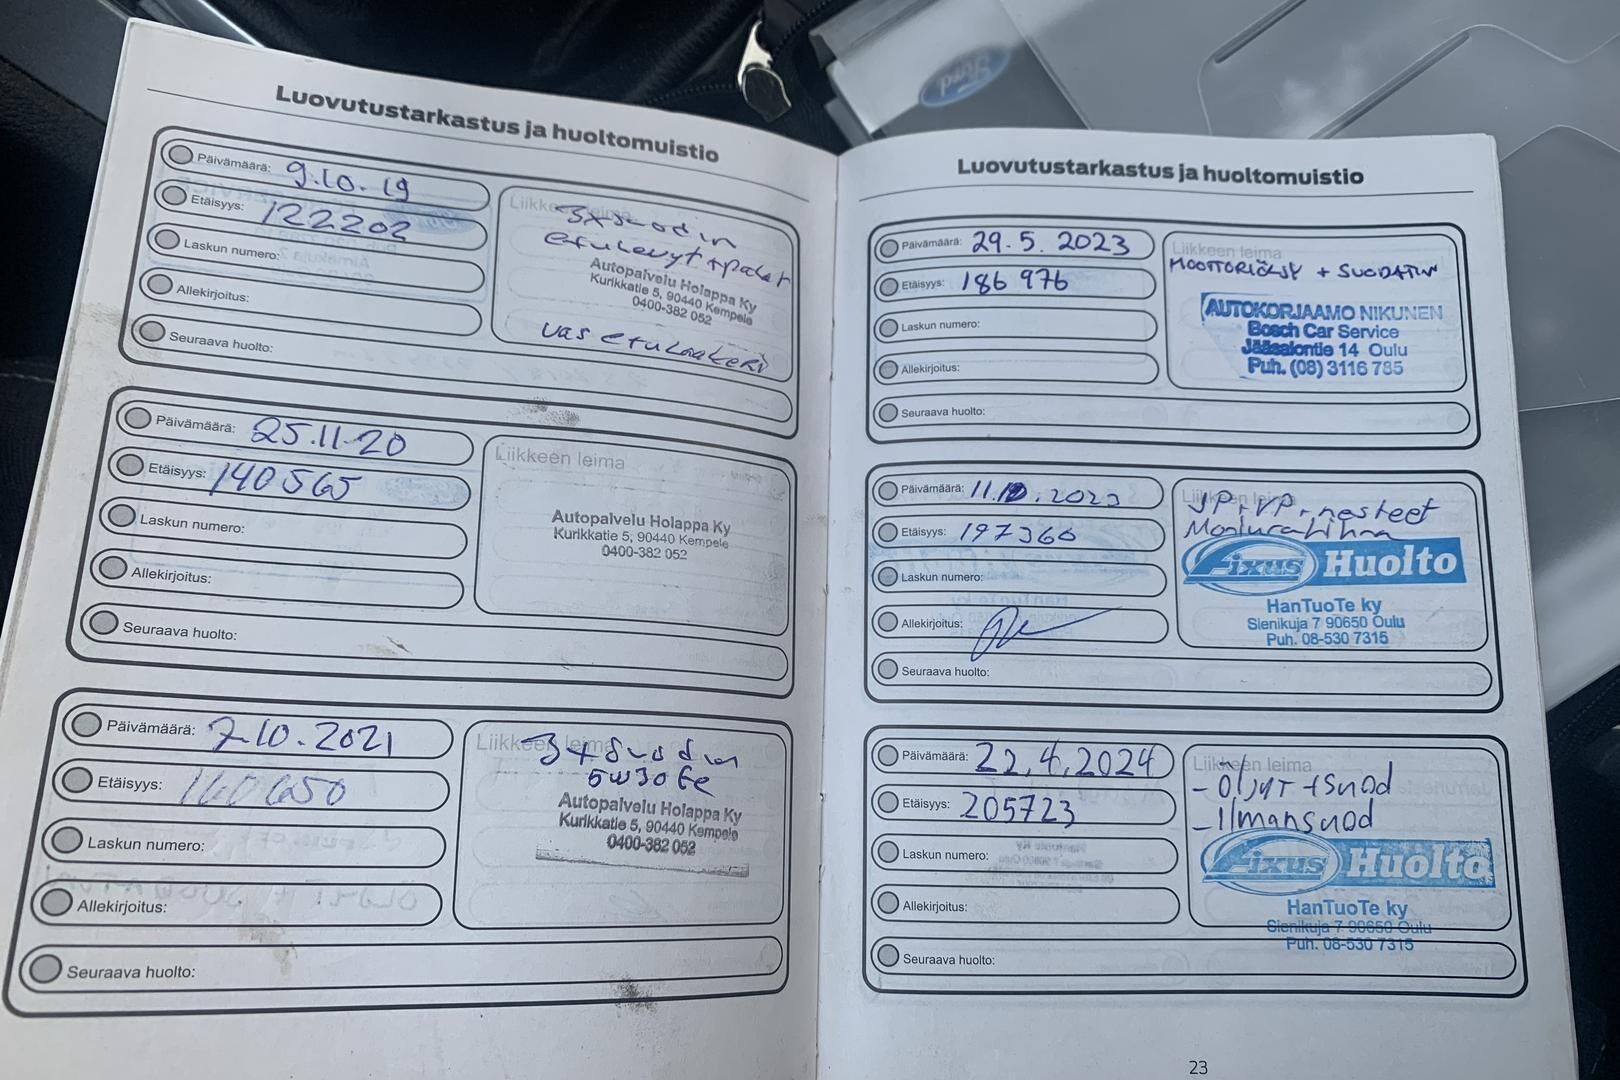 Luovutustarkastus ja huoltomuistio
Päivämäärä: 9.10.19
Etäisyys: 122202
Laskun numero:
Allekirjoitus:
Seuraava huolto:
Liikkeen leima
3x suodin
etulevyt + palat
Autopalvelu Holappa Ky
Kurikkatie 5, 90440 Kempele
0400-382 052
vas etulaakeri
Päivämäärä: 25.11-20
Etäisyys: 140565
Laskun numero:
Allekirjoitus:
Seuraava huolto:
Liikkeen leima
Autopalvelu Holappa Ky
Kurikkatie 5, 90440 Kempele
0400-382 052
Päivämäärä: 7.10.2021
Etäisyys: 160650
Laskun numero:
Allekirjoitus:
Seuraava huolto:
Liikkeen leima
3+ suodin
5W30
Autopalvelu Holappa Ky
Kurikkatie 5, 90440 Kempele
0400-382 052
Luovutustarkastus ja huoltomuistio
Päivämäärä: 29.5.2023
Etäisyys: 186 976
Laskun numero:
Allekirjoitus:
Seuraava huolto:
Liikkeen leima
MOOTTORIÖLJY + SUODATIN
AUTOKORJAAMO NIKUNEN
Bosch Car Service
Jääsalontie 14 Oulu
Puh. (08) 3116 785
Päivämäärä: 11.10.2023
Etäisyys: 197360
Laskun numero:
Allekirjoitus:
Seuraava huolto:
Liikkeen leima
JP, VP, nesteet
Moniurahihna
Fixus Huolto
HanTuoTe ky
Sienikuja 7 90650 Oulu
Puh. 08-530 7315
Päivämäärä: 22.4.2024
Etäisyys: 205723
Laskun numero:
Allekirjoitus:
Seuraava huolto:
Liikkeen leima
- Öljyt + suod
- Ilmansuod
Fixus Huolto
HanTuoTe ky
Sienikuja 7 90650 Oulu
Puh. 08-530 7315
23
Ford